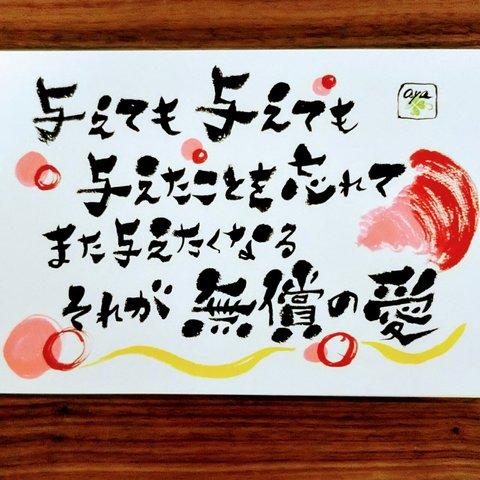 与えても 与えても
与えたことを忘れて
また与えたくなる
それが 無償の愛
aya